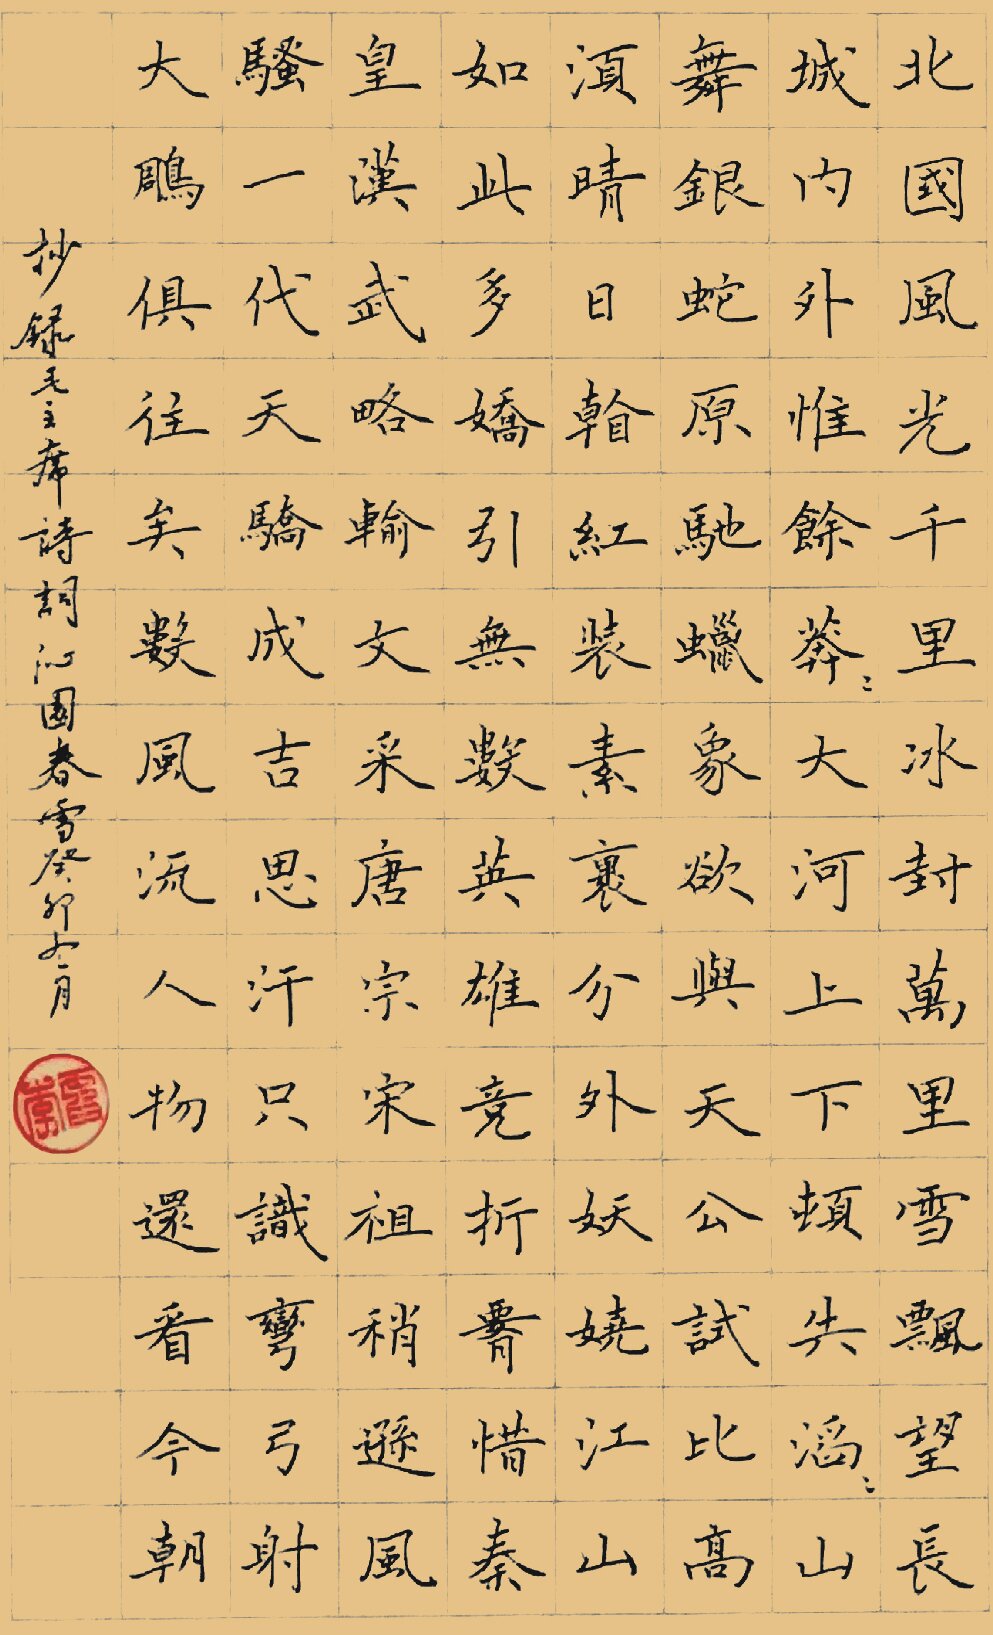 北國風光千里冰封萬里雪飄望長
城內外惟餘莽〻大河上下頓失滔〻山
舞銀蛇原馳蠟象欲與天公試比高
湏晴日紅裝素裹分外妖嬈江山
如此多嬌引無數英雄竞折腰惜秦
皇漢武略輸文采唐宗宋祖稍遜風
騷一代天驕成吉思汗只識彎弓射
大鵰俱往矣數風流人物還看今朝
抄録毛主席詩詞沁園春雪癸卯月